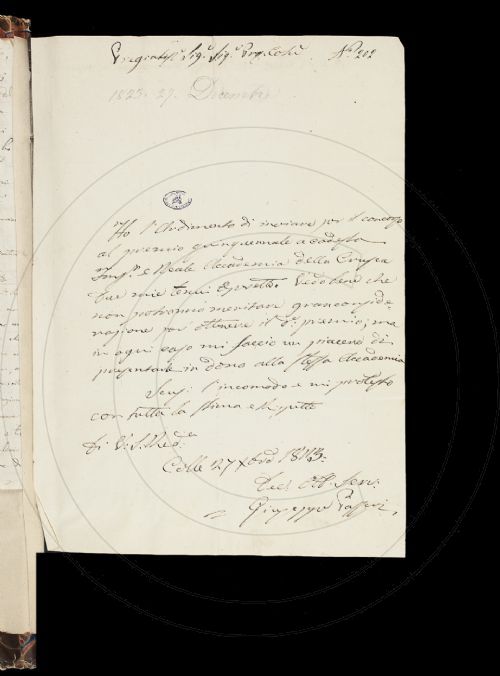 Pregiatis.o Sig.r Sig.r Pro.e Col.mo N.o 202
1823. 27. Dicembre
Ho l'Ardimento di inviare per il concorso
al premio quinquennale a codesta
Imp.e e Reale Accademia della Crusca
due mie tenui Operette. Vedo bene che
non potranno meritare gran conside-
razione per ottenere il d.o premio; ma
in ogni caso mi faccio un piacere di
presentarle in dono alla stessa Accademia
Scusi l'incomodo e mi protesto
con tutta la stima e rispetto
Di V. S. Med.a
Colle 27 Xbre 1823.
Dec. Obb. Serv.
Giuseppe